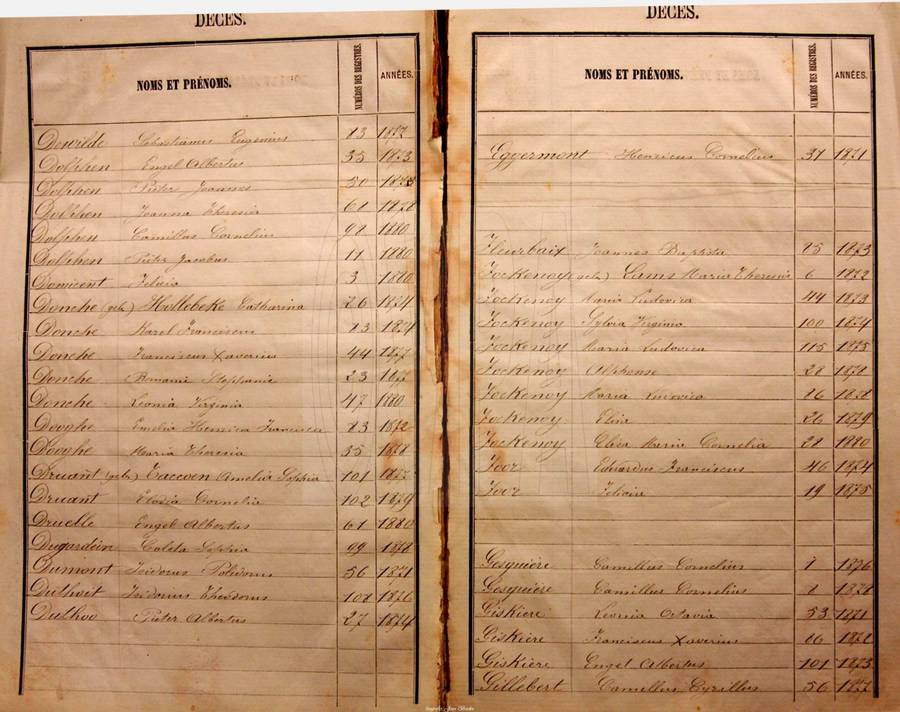 DÉCÈS.
NOMS ET PRÉNOMS. NUMÉROS DES REGISTRES. ANNÉES.
Dewilde Sebastianus Eugenius 23 1872
Dolphen Engel Albertus 35 1873
Dolphen Pieter Joannes 50 1873
Dolphen Joanna Theresia 61 1878
Dolphen Camillus Cornelius 92 1880
Dolphen Pieter Jacobus 11 1880
Domicent Felicia 3 1880
Donche (geb.) Hollebeke Catharina 26 1874
Donche Karel Franciscus 23 1874
Donche Franciscus Xaverius 44 1877
Donche Romanie Stephanie 23 1877
Donche Leonia Virginia 47 1880
Dooghe Emelia Henrica Francisca 23 1872
Dooghe Maria Theresia 35 1878
Druant (geb.) Taccoen Amelia Sophia 101 1877
Druant Elosia Cornelia 102 1879
Druelle Engel Albertus 61 1880
Dugardein Coleta Sophia 99 1878
Dumont Isidorus Polidorus 56 1871
Duthoit Isidorus Theodorus 101 1876
Duthoo Pieter Albertus 27 1874
DÉCÈS.
NOMS ET PRÉNOMS. NUMÉROS DES REGISTRES. ANNÉES.
Eggermont Henricus Cornelius 31 1871
Fleurbaix Joannes Baptista 25 1873
Fockenoy (geb.) Lams Maria Theresia 6 1872
Fockenoy Maria Ludovica 44 1873
Fockenoy Sylvia Virginia 100 1874
Fockenoy Maria Ludovica 115 1875
Fockenoy Alphonse 28 1878
Fockenoy Maria Ludovica 26 1878
Fockenoy Elisa 26 1879
Fockenoy Elisa Maria Cornelia 28 1880
Foor Eduardus Franciscus 46 1874
Foor Felicia 19 1875
Gesquière Camillus Cornelius 1876
Gesquière Camillus Cornelius 1878
Giskière Leonia Octavia 53 1871
Giskière Franciscus Xaverius 26 1872
Giskière Engel Albertus 101 1873
Gillebert Camillus Cyrillus 56 1877